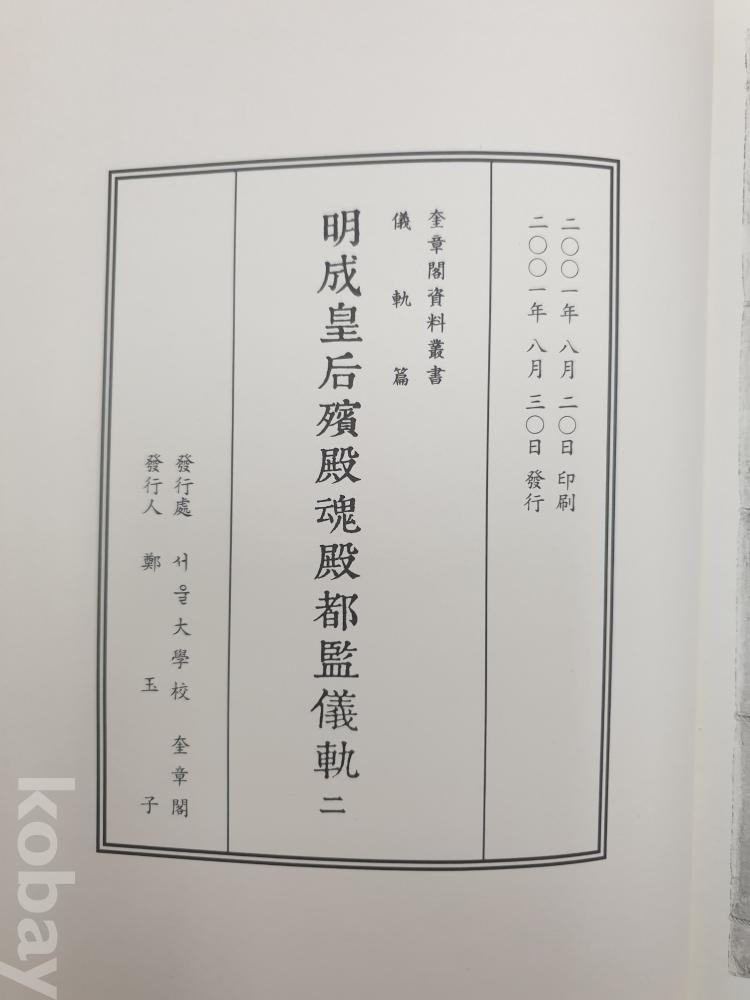 二〇〇一年 八月 二〇日 印刷
二〇〇一年 八月 三〇日 發行
奎章閣資料叢書
儀軌篇
明成皇后殯殿魂殿都監儀軌 二
發行處 서울大學校 奎章閣
發行人 鄭玉子
kobay